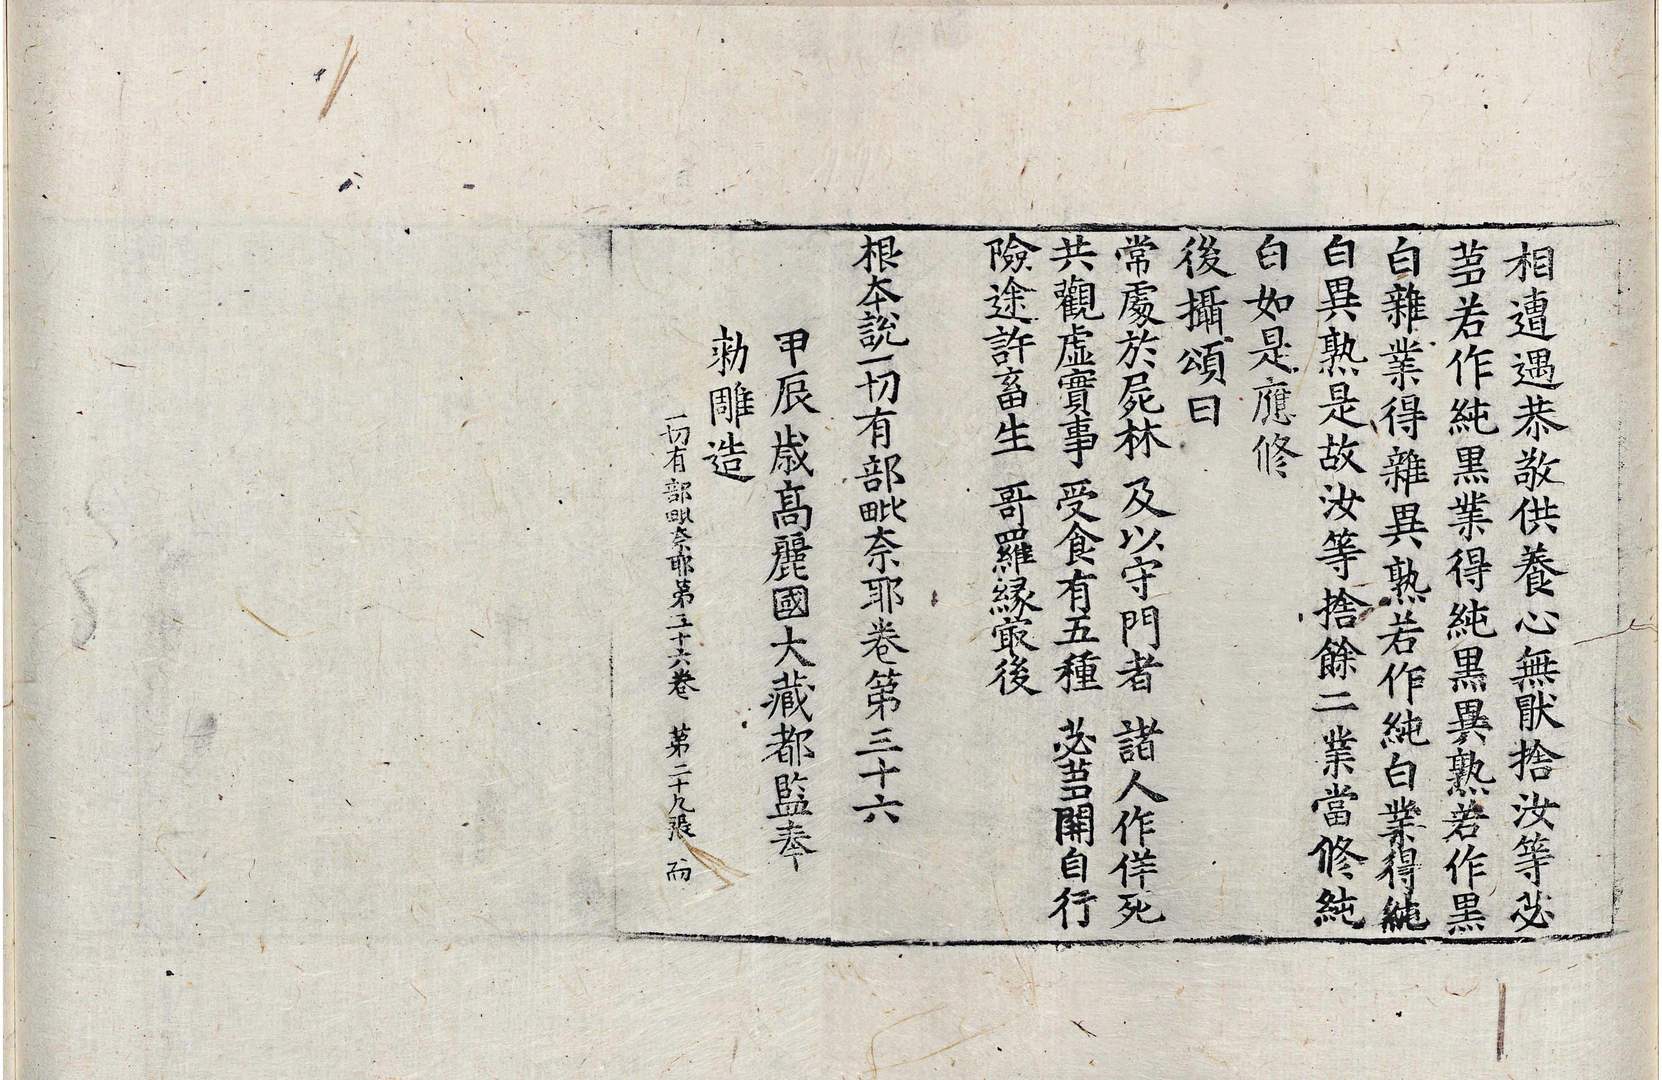 相遭遇恭敬供養心無猒捨汝等苾
芻若作純黒業得純黒異熟若作黒
白雜業得雜異熟若作純白業得純
白異熟是故汝等捨餘二業當修純
白如是應修
後攝頌曰
常處於屍林 及以守門者 諸人作佯死
共觀虛實事 受食有五種 苾芻開自行
險途許畜生 哥羅緣㝡後
根本說一切有部毗奈耶卷第三十六
甲辰歲高麗國大藏都監奉
勅雕造
一切有部毗奈耶第三十六卷 第二十九張